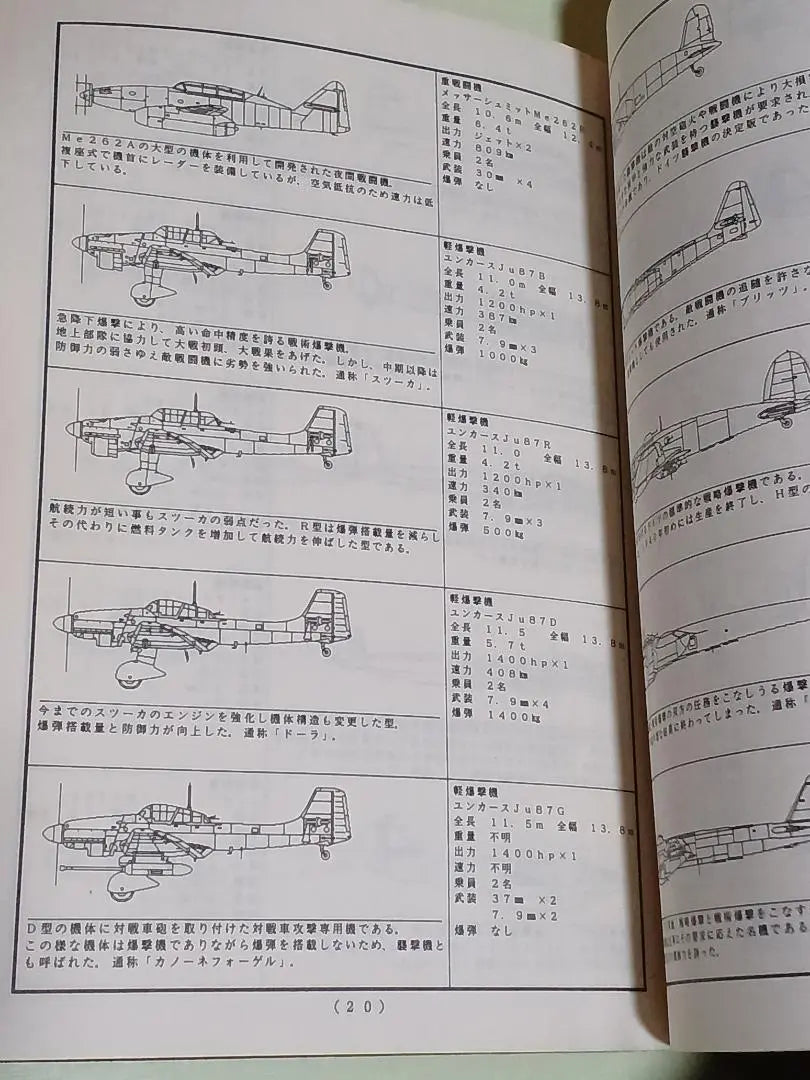 重戦闘機
メッサーシュミットMe262B
全長 10.6m 全幅 12.4m
重量 6.4t
出力 ジェット×2
速力 809㎞
乗員 2名
武装 30㎜ ×4
爆弾 なし
Me262Aの大型の機体を利用して開発された夜間戦闘機。
複座式で機首にレーダーを装備しているが、空気抵抗のため速力は低
下している。
軽爆撃機
ユンカースJu87B
全長 11.0m 全幅 13.8m
重量 4.2t
出力 1200hp×1
速力 387㎞
乗員 2名
武装 7.9㎜×3
爆弾 1000㎏
急降下爆撃により、高い命中精度を誇る戦術爆撃機。
地上部隊に協力して大戦初頭、大戦果をあげた。しかし、中期以降は
防御力の弱さゆえ敵戦闘機に劣勢を強いられた。通称「スツーカ」。
軽爆撃機
ユンカースJu87R
全長 11.0 全幅 13.8m
重量 4.2t
出力 1200hp×1
速力 340㎞
乗員 2名
武装 7.9㎜×3
爆弾 500㎏
航続力が短い事もスツーカの弱点だった。R型は爆弾搭載量を減らし
その代わりに燃料タンクを増加して航続力を伸ばした型である。
軽爆撃機
ユンカースJu87D
全長 11.5 全幅 13.8m
重量 5.7t
出力 1400hp×1
速力 408㎞
乗員 2名
武装 7.9㎜×4
爆弾 1400㎏
今までのスツーカのエンジンを強化し機体構造も変更した型。
爆弾搭載量と防御力が向上した。通称「ドーラ」。
軽爆撃機
ユンカースJu87G
全長 11.5m 全幅 13.8m
重量 不明
出力 1400hp×1
速力 不明
乗員 2名
武装 37㎜ ×2
7.9㎜×2
爆弾 なし
D型の機体に対戦車砲を取り付けた対戦車攻撃専用機である。
この様な機体は爆撃機でありながら爆弾を搭載しないため、襲撃機と
も呼ばれた。通称「カノーネフォーゲル」。
(20)
対空砲火や戦闘機により大損
武装を持つ襲撃機が要求され
であり、ドイツ襲撃機の決定版であった
爆撃機である。敵戦闘機の追随を許さな
しても使用された。通称「ブリッツ」。
の標準的な戦略爆撃機である。
初めには生産を終了し、H型の
双方の任務をこなしうる爆撃
に終わってしまった。通称「
戦略爆撃と戦術爆撃をこなす
の要求に応えた名機である
を誇った。